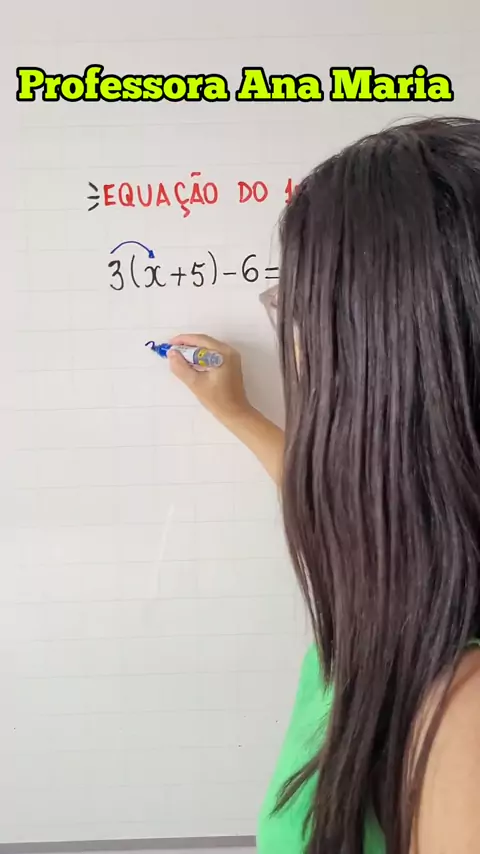 Professora Ana Maria
EQUAÇÃO DO
3(x+5)-6=